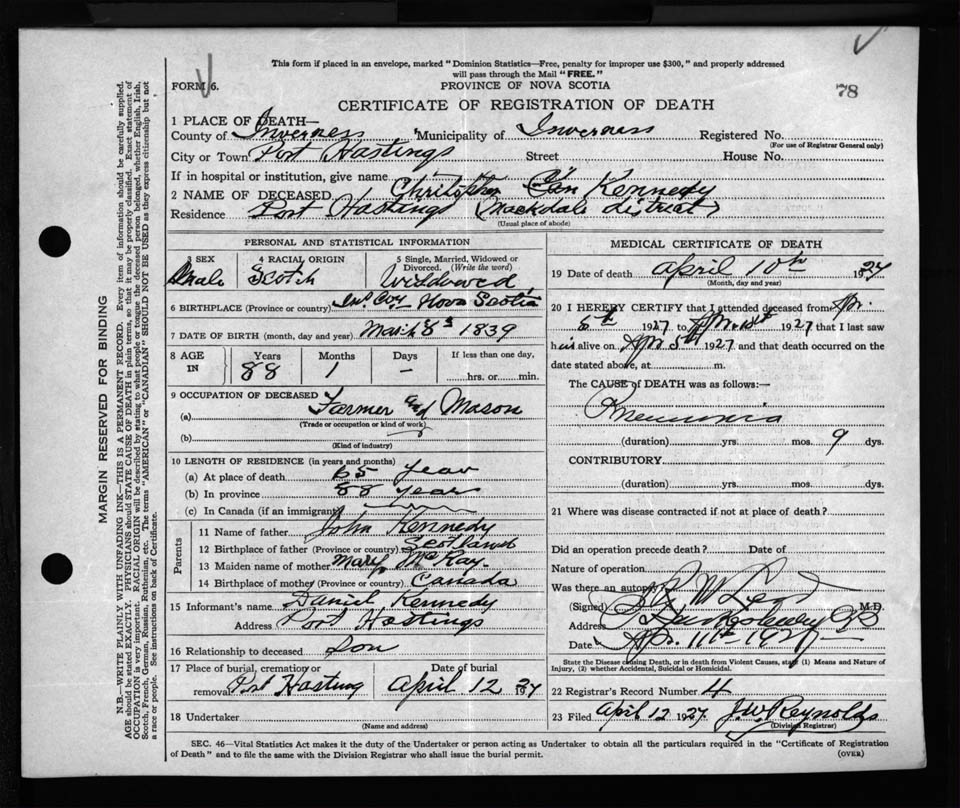 This form if placed in an envelope, marked "Dominion Statistics—Free, penalty for improper use $300," and properly addressed
will pass through the Mail "FREE."
FORM 6.
PROVINCE OF NOVA SCOTIA
78
CERTIFICATE OF REGISTRATION OF DEATH
1 PLACE OF DEATH—
County of Inverness Municipality of Inverness Registered No.
(For use of Registrar General only)
City or Town Port Hastings Street House No.
If in hospital or institution, give name
2 NAME OF DECEASED Christopher Kennedy
Residence Port Hastings (Mackdale district)
(Usual place of abode)
PERSONAL AND STATISTICAL INFORMATION
3 SEX 4 RACIAL ORIGIN 5 Single, Married, Widowed or Divorced. (Write the word)
Male Scotch Widowed
6 BIRTHPLACE (Province or country) Inv Coy Nova Scotia
7 DATE OF BIRTH (month, day and year) March 8 1839
8 AGE IN Years Months Days If less than one day,
88 1 - hrs. or min.
9 OCCUPATION OF DECEASED
(a) Farmer and Mason
(Trade or occupation or kind of work)
(b)
(Kind of industry)
10 LENGTH OF RESIDENCE (in years and months)
(a) At place of death 65 year
(b) In province 88 years
(c) In Canada (if an immigrant)
Parents
11 Name of father John Kennedy
12 Birthplace of father (Province or country) Scotland
13 Maiden name of mother Mary McKay
14 Birthplace of mother (Province or country) Canada
15 Informant's name Daniel Kennedy
Address Port Hastings
16 Relationship to deceased Son
17 Place of burial, cremation or removal Date of burial
Port Hasting April 12 1927
18 Undertaker
(Name and address)
MEDICAL CERTIFICATE OF DEATH
19 Date of death April 10th 1927
(Month, day and year)
20 I HEREBY CERTIFY that I attended deceased from Apr.
5th 1927 to 1927 that I last saw
him alive on Apr 5th 1927 and that death occurred on the
date stated above, at m.
The CAUSE of DEATH was as follows:—
Pneumonia
(duration) yrs. mos. 9 dys.
CONTRIBUTORY
(duration) yrs. mos. dys.
21 Where was disease contracted if not at place of death?
Did an operation precede death? Date of
Nature of operation
Was there an autopsy?
(Signed) M.D.
Address
Date Apr. 11th 1927
State the Disease causing Death, or in death from Violent Causes, state (1) Means and Nature of
Injury, (2) whether Accidental, Suicidal or Homicidal.
22 Registrar's Record Number 4
23 Filed April 12 1927. J.W. Reynolds
(Division Registrar)
SEC. 46—Vital Statistics Act makes it the duty of the Undertaker or person acting as Undertaker to obtain all the particulars required in the "Certificate of Registration
of Death" and to file the same with the Division Registrar who shall issue the burial permit.
(OVER)
MARGIN RESERVED FOR BINDING
N.B.—WRITE PLAINLY WITH UNFADING INK—THIS IS A PERMANENT RECORD. Every item of information should be carefully supplied.
AGE should be stated EXACTLY. PHYSICIANS should STATE CAUSE OF DEATH in plain terms, so that it may be properly classified. Exact statement of
OCCUPATION is very important. RACIAL ORIGIN will be described by stating to what people or tongue the deceased person belonged, whether English, Irish,
Scotch, French, German, Russian, Ruthenian, etc. The terms "AMERICAN" or "CANADIAN" SHOULD NOT BE USED as they express citizenship but not
a race or people. See instructions on back of Certificate.